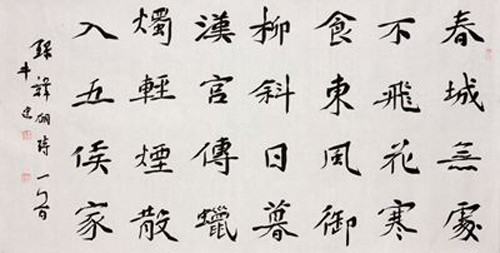 春城無處
不飛花寒
食東風御
柳斜日暮
漢宮傳蠟
燭輕煙散
入五侯家
録韓翃詩一首
牛